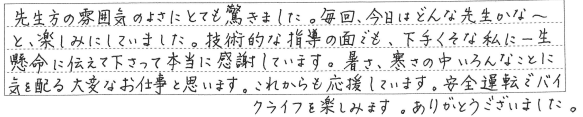 先生方の雰囲気のよさにとても驚きました。毎回、今日はどんな先生かな～
と、楽しみにしていました。技術的な指導の面でも、下手くそな私に一生
懸命に伝えて下さって本当に感謝しています。暑さ、寒さの中いろんなことに
気を配る大変なお仕事と思います。これからも応援しています。安全運転でバイ
クライフを楽しみます。ありがとうございました。